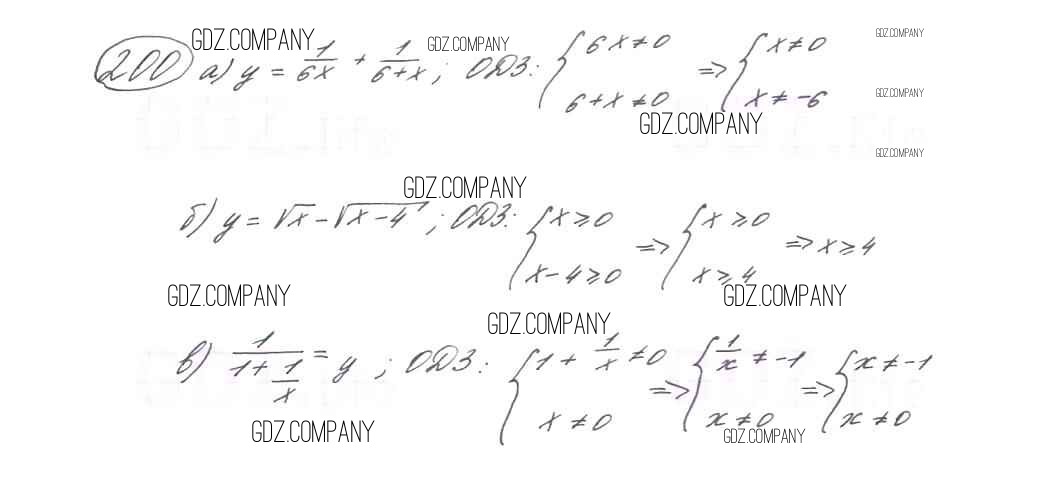 GDZ.COMPANY GDZ.COMPANY GDZ.COMPANY
200 а) y = 1/6x + 1/6+x ; ОДЗ: { 6x ≠ 0 6+x ≠ 0 => { x ≠ 0 x ≠ -6
GDZ.COMPANY
GDZ.COMPANY
GDZ.COMPANY
GDZ.COMPANY
б) y = √x - √x-4 ; ОДЗ: { x ≥ 0 x-4 ≥ 0 => { x ≥ 0 x ≥ 4 => x ≥ 4
GDZ.COMPANY GDZ.COMPANY
GDZ.COMPANY
в) 1/1+1/x = y ; ОДЗ: { 1 + 1/x ≠ 0 x ≠ 0 => { 1/x ≠ -1 x ≠ 0 => { x ≠ -1 x ≠ 0
GDZ.COMPANY GDZ.COMPANY